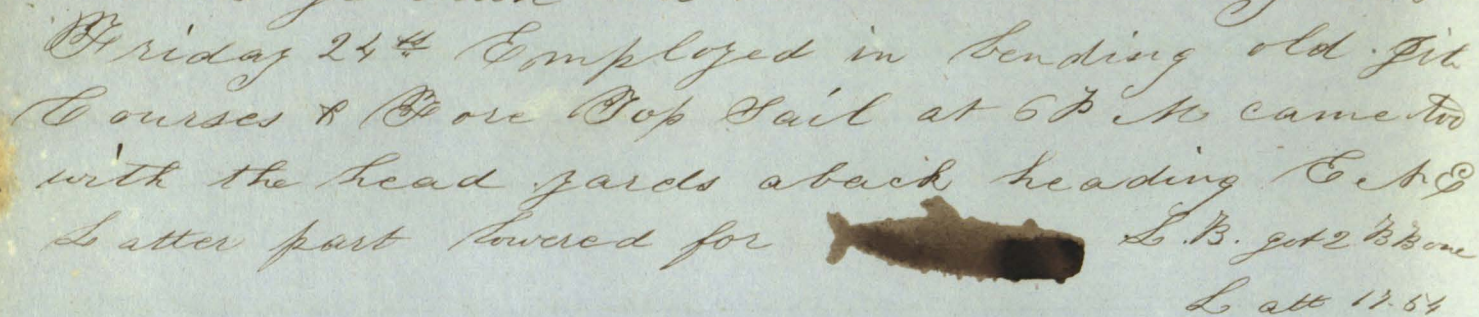 Friday 24th Employed in bending old Jib
Courses & Fore Top Sail at 6 P M came too
with the head yards aback heading E N E
Latter part lowered for L. B. got 2 B Bone
Latt 17.54